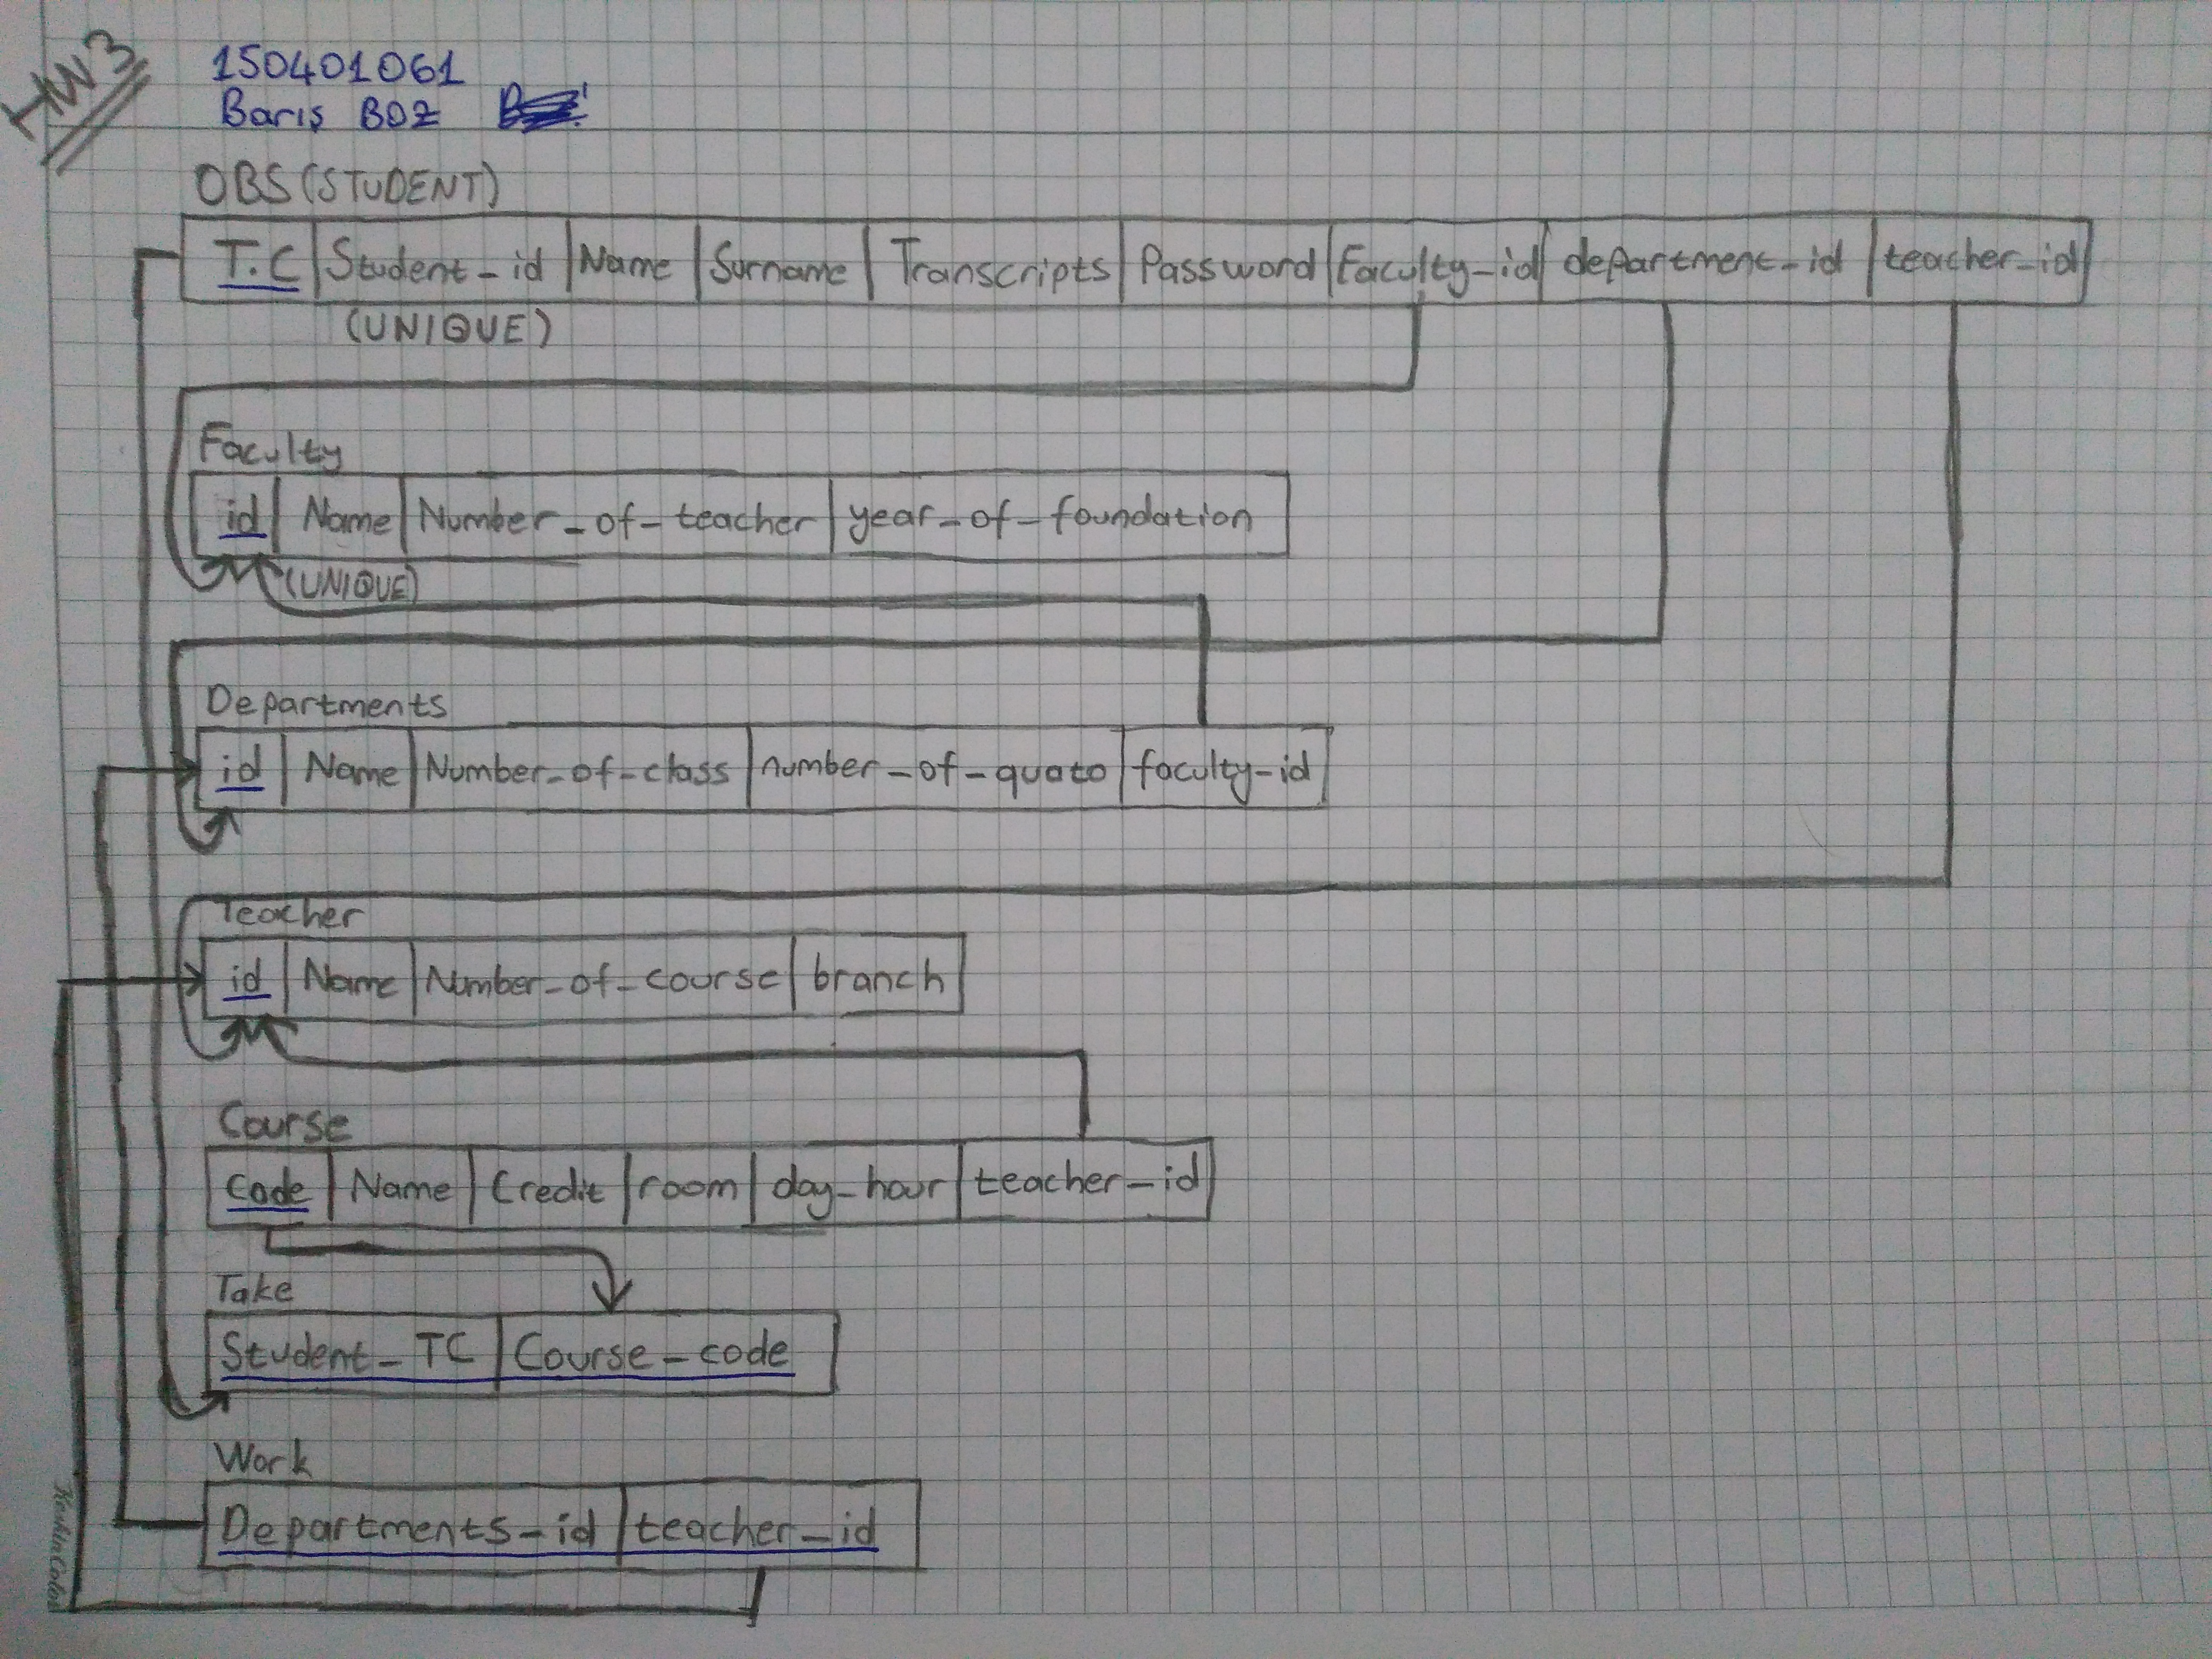 HW3
150401061
Barış BOZ
OBS(STUDENT)
T.C Student_id Name Surname Transcripts Password Faculty_id department_id teacher_id
(UNIQUE)
Faculty
id Name Number_of_teacher year_of_foundation
(UNIQUE)
Departments
id Name Number_of_class number_of_quato faculty_id
Teacher
id Name Number_of_course branch
Course
Code Name Credit room day_hour teacher_id
Take
Student_TC Course_code
Work
Departments_id teacher_id
Keskin Color